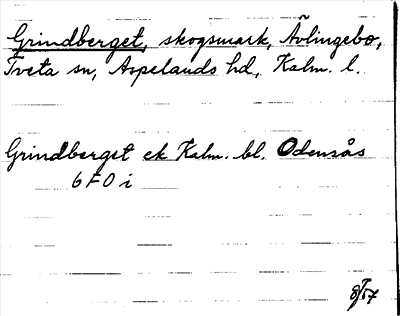 Grindberget, skogsmark, Åvlingebo,
Tveta sn, Aspelands hd, Kalm. l.
Grindberget ek Kalm. bl. Odensås
6 F 0 i